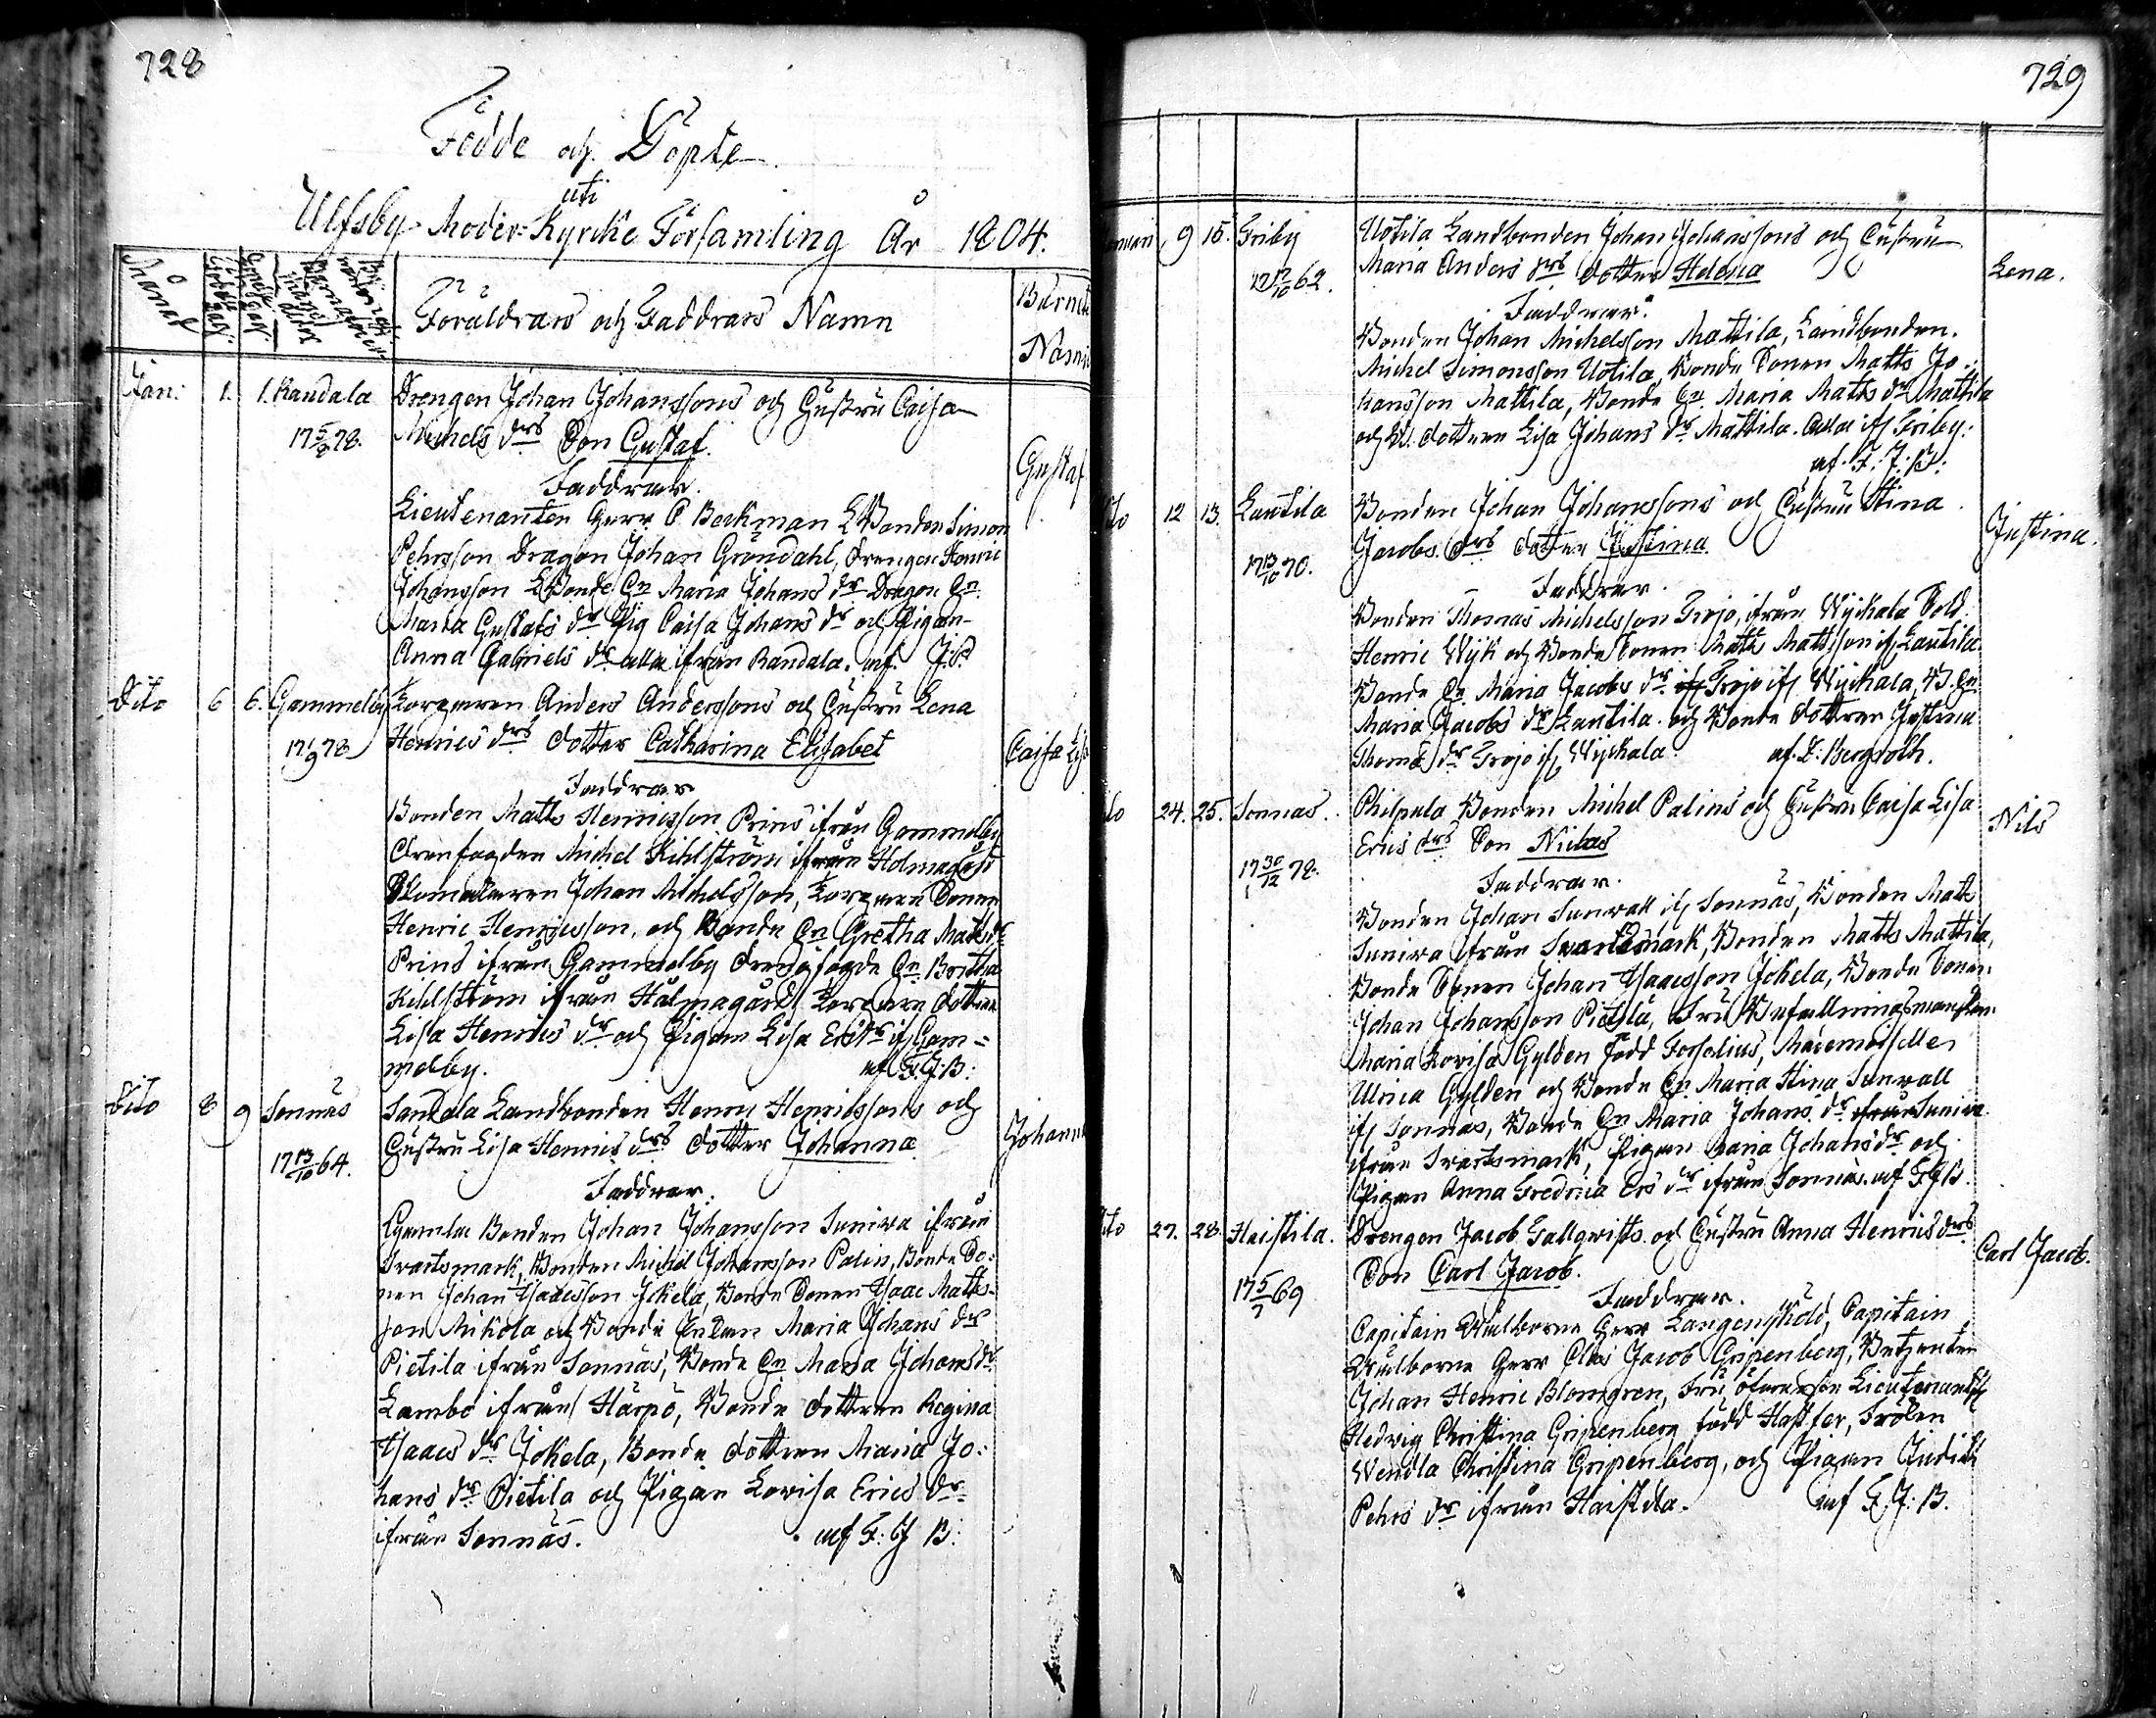 728
Födde och Döpte
uti
Ulfsby Moder-Kyrckio Församling År 1804.
Månad
Födelse dag.
Döpelse dag.
Föräldrars och Faddrars Namn
Barnets
Namn
Jan: 1. 1. Randala Drengen Johan Johanssons och Hustru Caisa
17 5/8 78. Michels drs Son Gustaf. Gustaf
Faddrar.
Lieutenanten Herr C Beckman LBonden Simon
Pehrsson Dragon Johan Gröndahl, drengen Henric
Johansson LBonde En Maria Johans dr Dragon En
Maria Gustafs dr Pig Caisa Johans dr och Pigan
Anna Gabriels dr alla ifrån Randala. af J.P.
Dito 6 6. Gammelby Torparen Anders Anderssons och Hustru Lena
17 1/9 78 Henrics drs dotter Catharina Elisabet Caisa Lisa
Faddrar
Bonden Matts Henricsson Prins ifrån Gammelby
drenfogden Michel Kihlström ifrån Holmagård
Johan Michelsson, Torpare Sonen
Henric Henricsson, och Bonde En Gretha Matts dr
Prins ifrån Gammelby drengfogde En Britha
Kihlström ifrån Hålmagård Torpare dottren
Lisa Henrics dr och Pigan Lisa Ers dr if Gam=
melby. af F.J.B:
Dito 8 9 Sonnäs Santala Landbonden Henric Henricssons och
17 13/10 64. Hustru Lisa Henrics drs dotter Johanna Johanna
Faddrar.
Gamla Bonden Johan Johansson Suniva ifrån
Svartsmark, Bonden Michel Johansson Palin, Bonde So:
nen Johan Isaacsson Jokela, Bonde Sonen Isaac Matts-
son Mikola och Bonde Enkan Maria Johans dr
Pietila ifrån Sonnäs, Bonde En Maria Johans dr
Lambo ifrån Härpö, Bonde dottren Regina
Isaacs dr Jokela, Bonde dottren Maria Jo:
hans dr Pietila och Pigan Lovisa Erics dr
ifrån Sonnäs. af F: J B:
729
9 15. Friby Uotila Landbonden Johan Johanssons och Hustru
17 12/10 62. Maria Anders drs dotter Helena Lena.
Faddrar.
Bonden Johan Michelsson Mattila, Landbonden.
Michel Simonsson Uotila, Bonde Sonen Matts Jo:
hansson Mattila, Bonde En Maria Matts dr Mattila
och B. dottren Lisa Johans dr Mattila. Alla if Friby.
af. F: J: B:
ito 12 13. Lautila Bonden Johan Johanssons och Hustru Stina
17 13/10 70. Jacobs drs dotter Justina Justina.
Faddrar.
Bonden Thomas Michelsson Trojo, ifrån Wyckala Sold.
Henric Wijk och Bonde Sonen Matts Mattsson if Lautila
Bonde En Maria Jacobs dr Trojo if Wyckala, B. En
Maria Jacobs dr Lautila och Bonde dottren Justina
Thoms dr Trojo if Wyckala. af. F: Bergroth.
ito 24. 25. Sonnas. Philpula Bonden Michel Palins och Hustru Caisa Lisa
17 30/12 78. Erics drs Son Niclas Nils
Faddrar.
Bonden Johan Sunvall if Sonnäs, Bonden Matts
Suniva ifrån Svartsmark, Bonden Matts Mattila,
Bonde Sonen Johan Isaacsson Jokela, Bonde Sonen
Johan Johansson Pietila, Fru Befallningsmanskan
Maria Lovisa Gylden född Forselius, Mademoiselle
Ulrica Gylden och Bonde En Maria Stina Sunvall
if Sonnäs, Bonde En Maria Johans dr Suniva
ifrån Svartsmark, Pigan Maria Johans dr och
Pigan Anna Fredrica Ers dr ifrån Sonnäs. af F.J.B.
ito 27. 28. Haistila. Drengen Jacob Gallqwists och Hustru Anna Henrics drs
17 5/7 69 Son Carl Jacob. Carl Jacob.
Faddrar.
Capitain Wälborne Herr Langensköld, Capitain
Wälborne Herr Clas Jacob Gripenberg,
Johan Henric Blomgren, Fru
Hedwig Christina Gripenberg född Hastfer, Fröken
Wendla Christina Gripenberg, och Pigan Judith
Pehrs dr ifrån Haistila. af F.J: B.